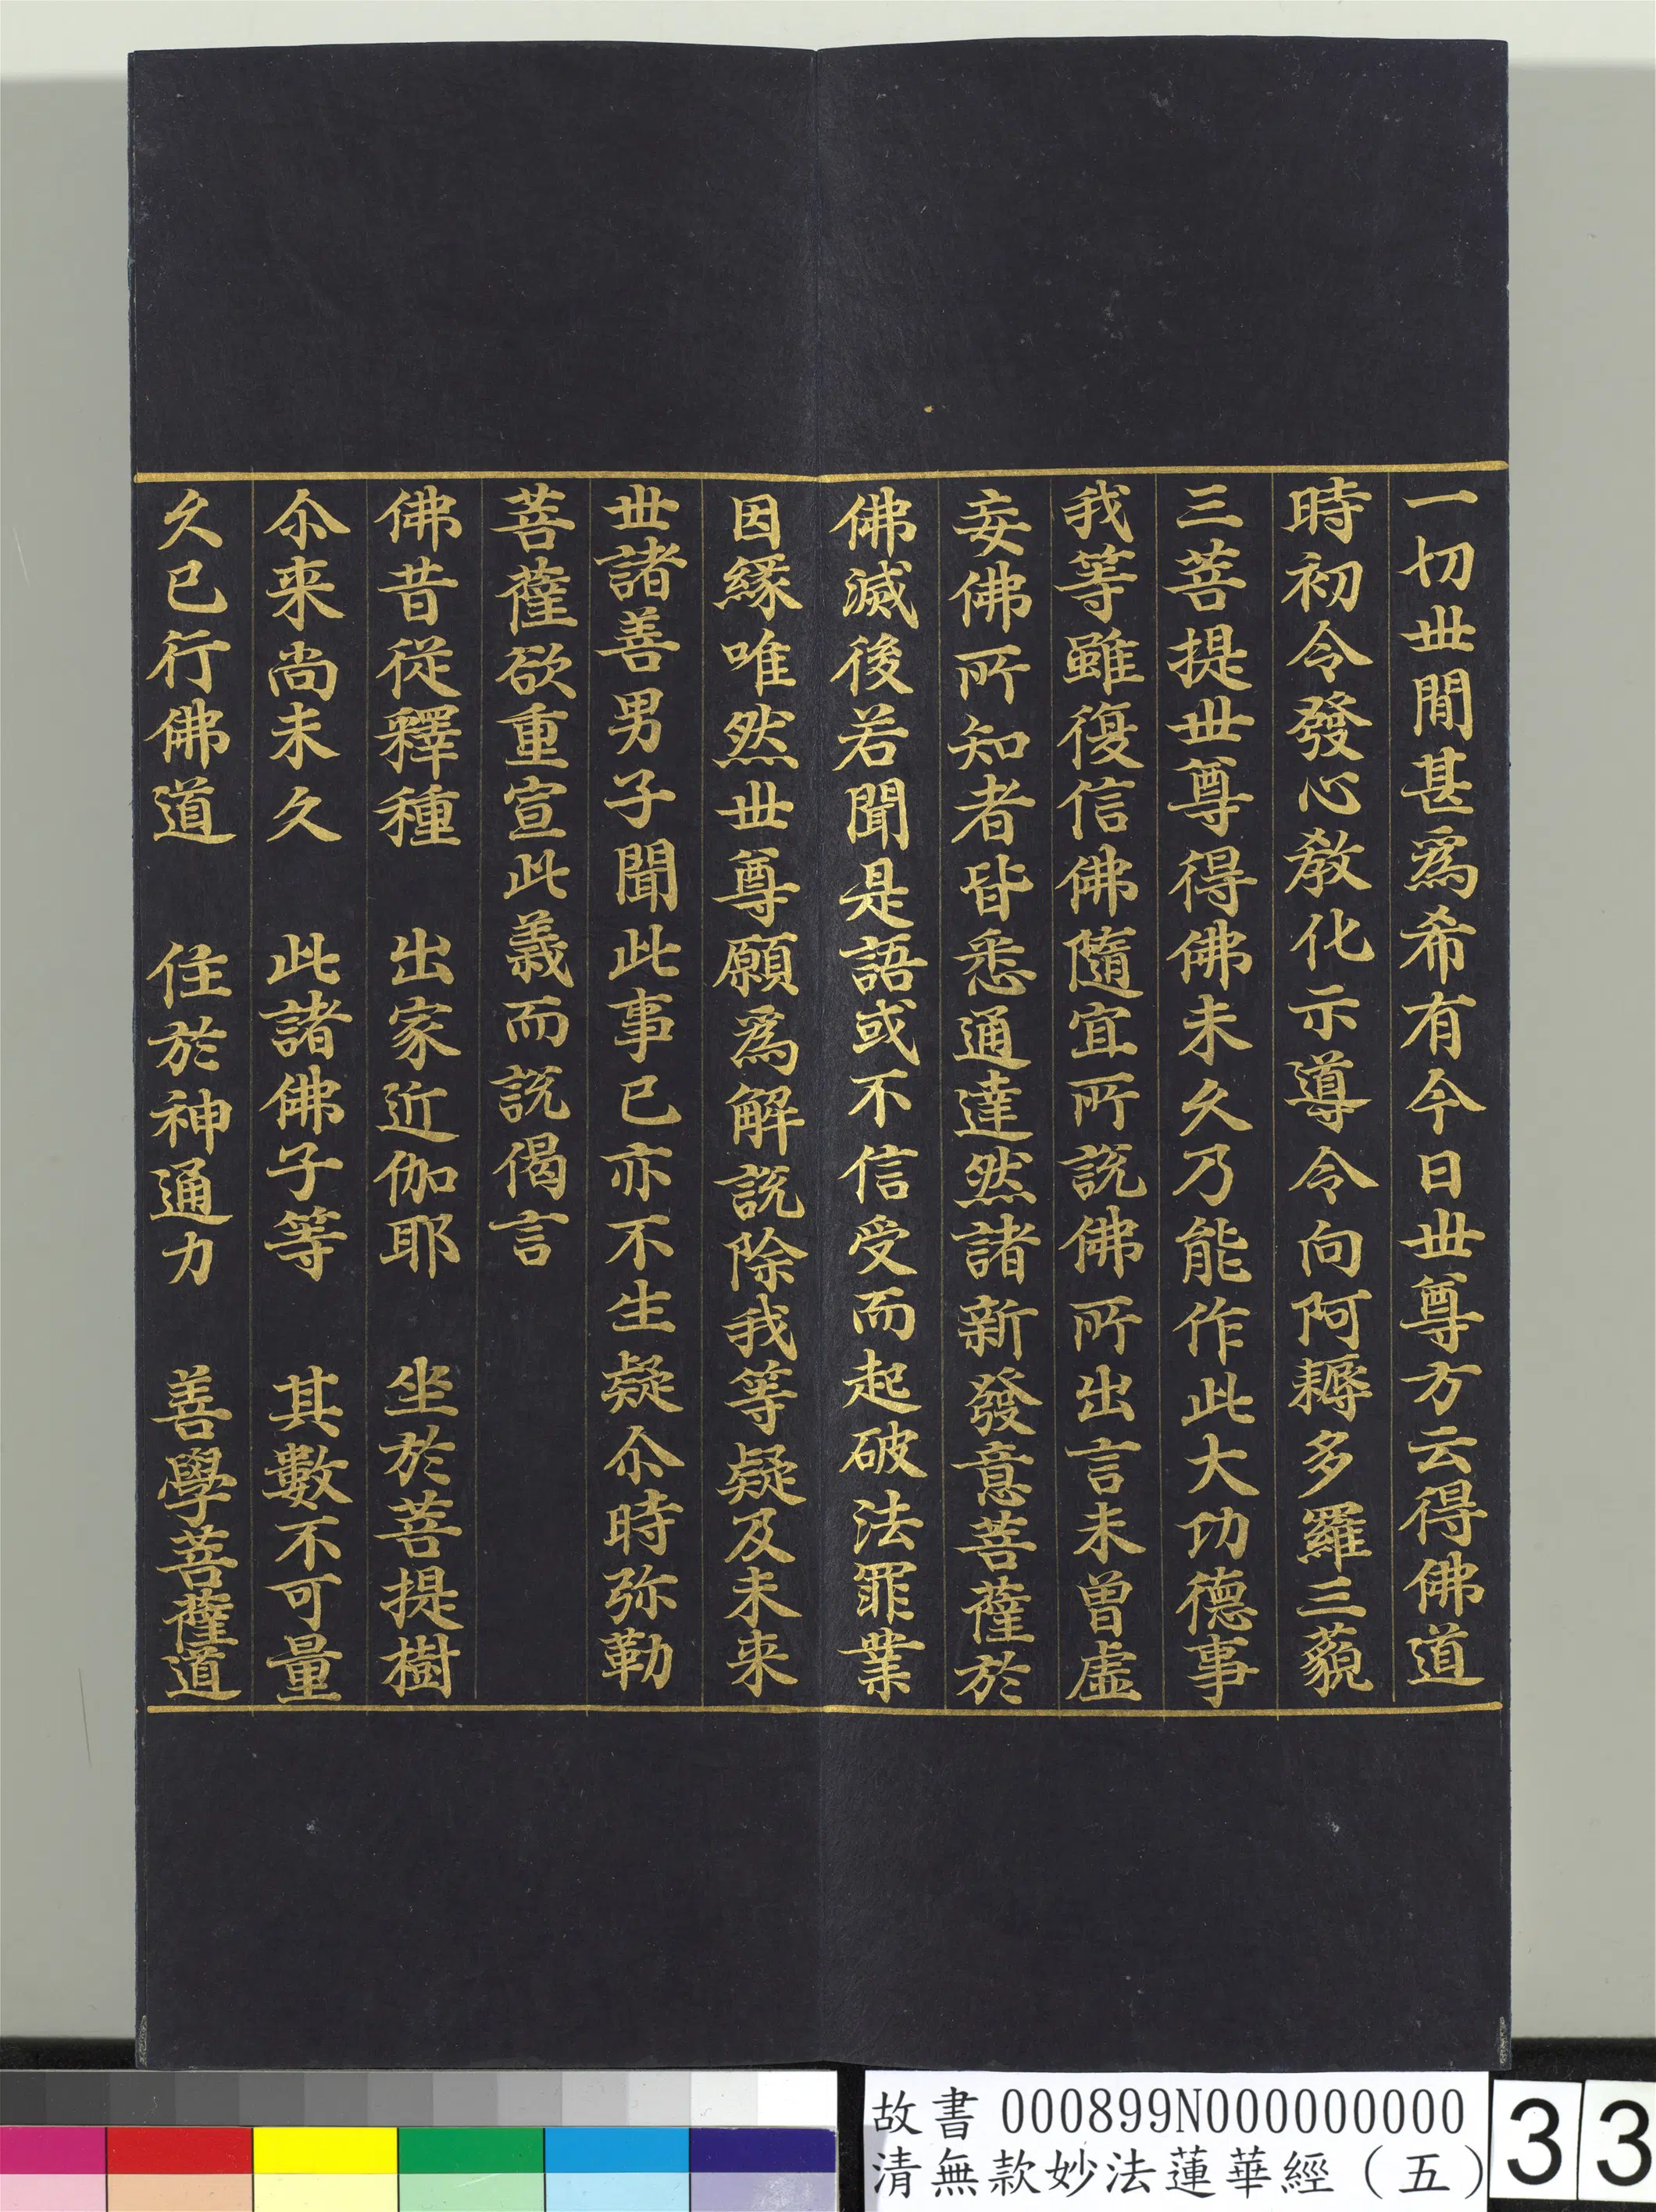 一切世間甚爲希有今日世尊方云得佛道
時初令發心教化示導令向阿耨多羅三藐
三菩提世尊得佛未久乃能作此大功德事
我等雖復信佛隨宜所說佛所出言未曾虛
妄佛所知者皆悉通達然諸新發意菩薩於
佛滅後若聞是語或不信受而起破法罪業
因緣唯然世尊願爲解說除我等疑及未来
世諸善男子聞此事已亦不生疑尒時弥勒
菩薩欲重宣此義而說偈言
佛昔從釋種　出家近伽耶　坐於菩提樹
尒来尚未久　此諸佛子等　其數不可量
久已行佛道　住於神通力　善學菩薩道
故書 000899N000000000
清無款妙法蓮華經（五）
33